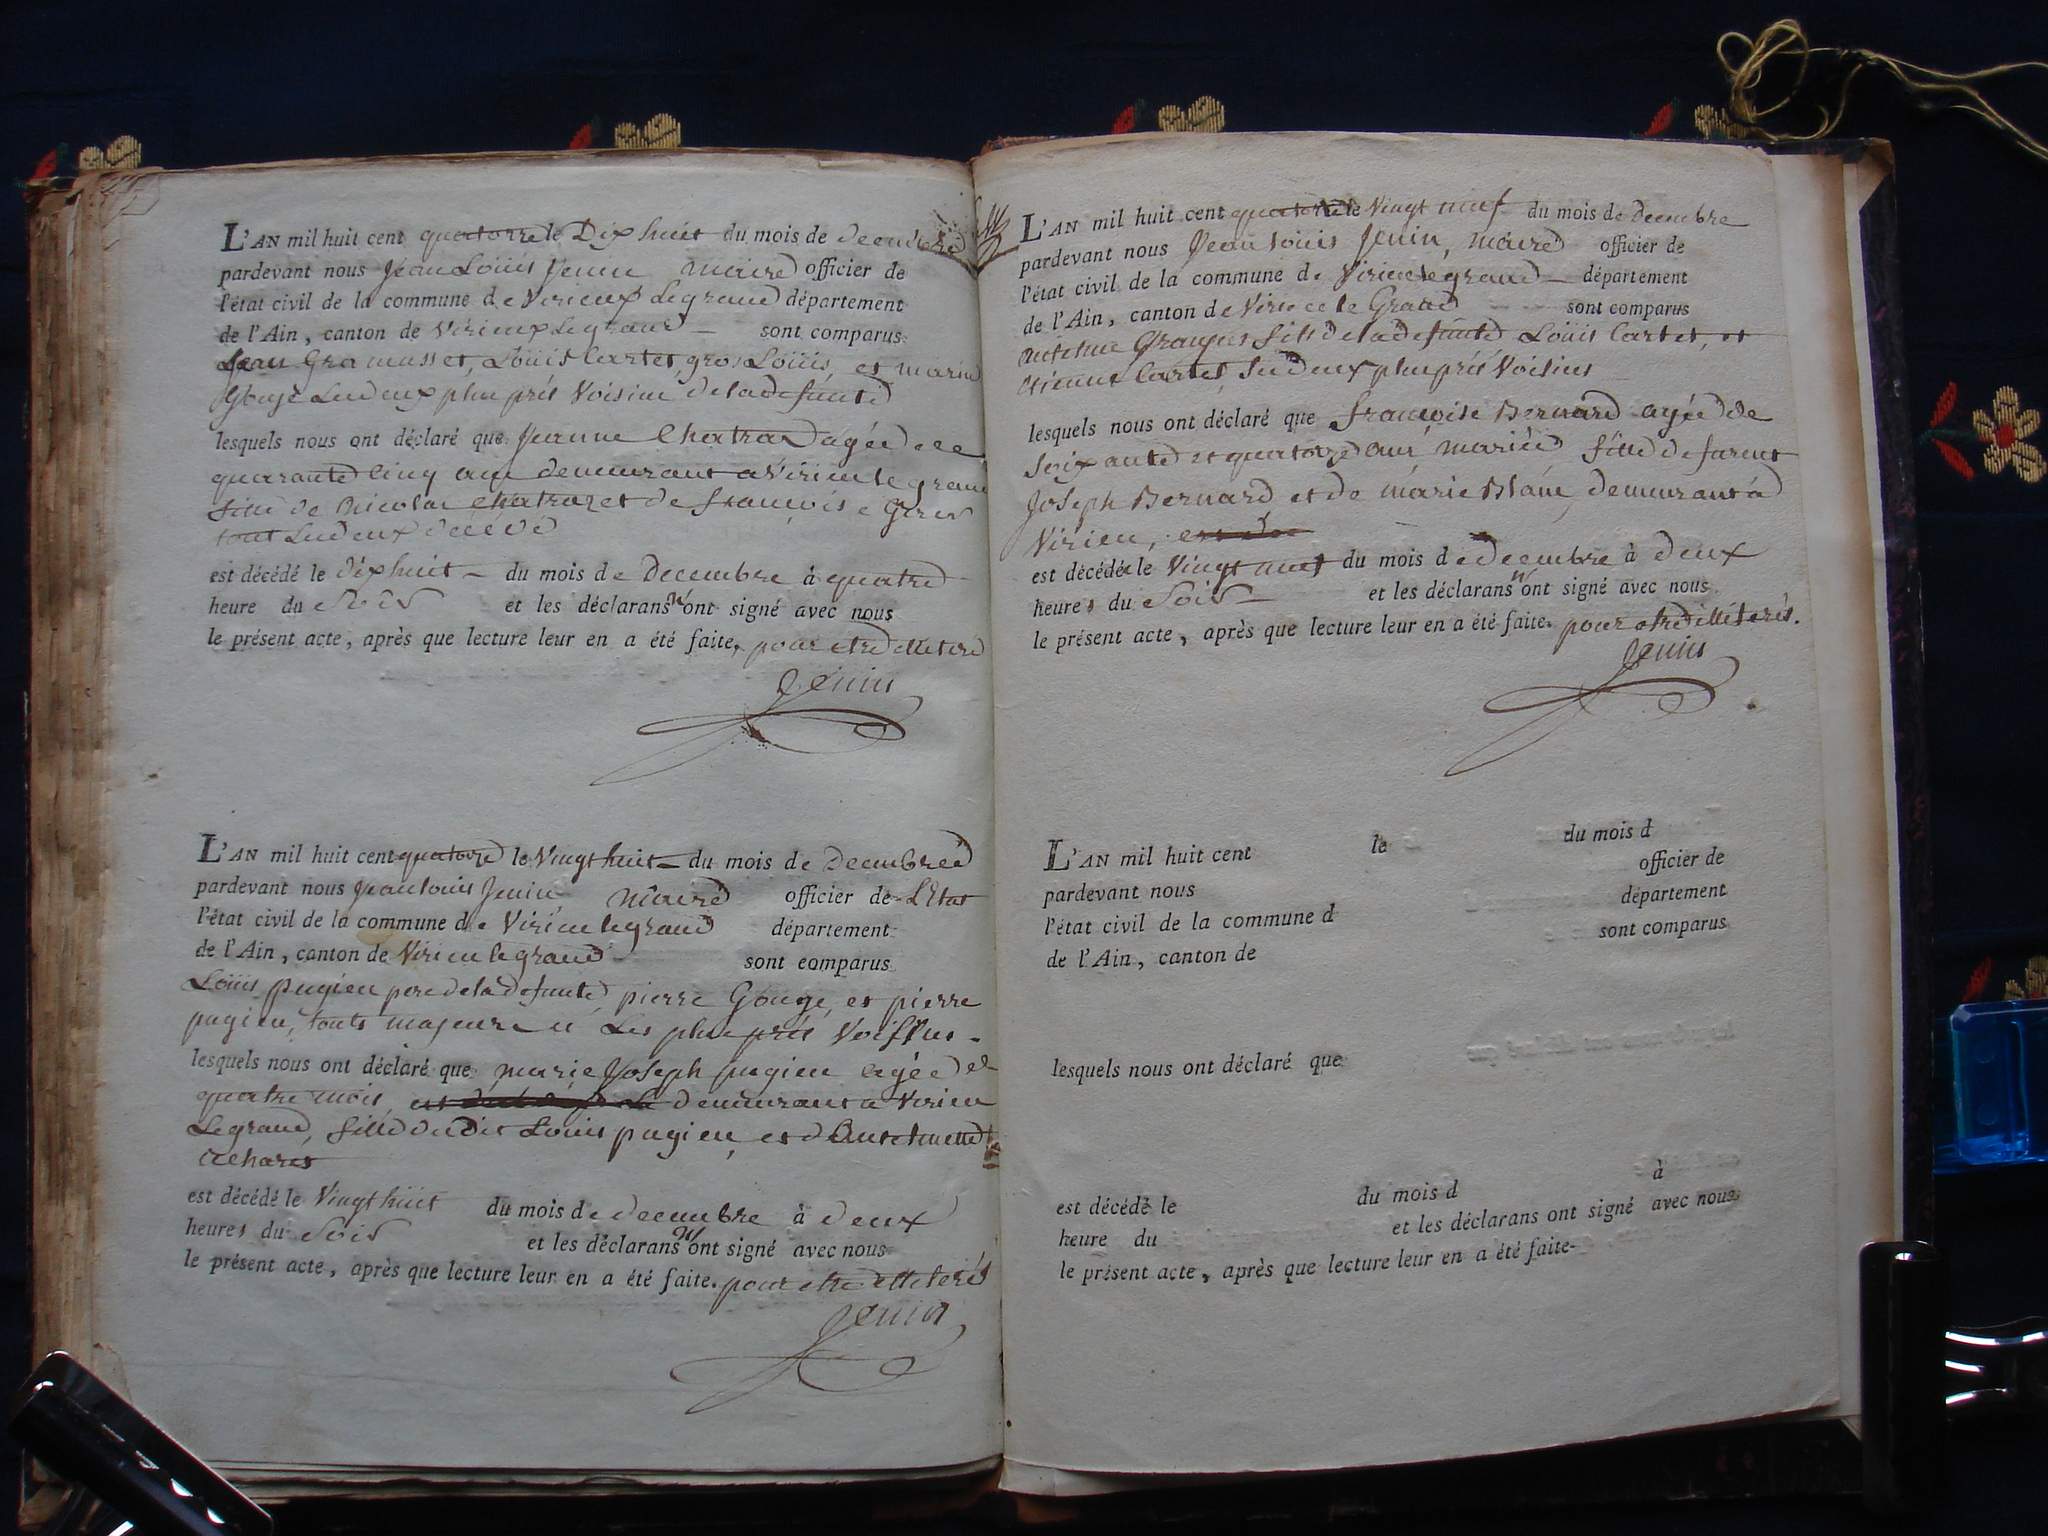 L'AN mil huit cent quatorze le Dix huit du mois de decembre
pardevant nous Jean Loüis Jenin maire officier de
l'état civil de la commune de Virieux Legrand département
de l'Ain, canton de Virieux Legrand sont comparus
Jean Gramusset, Loüis Cartet, gros Loüis, et marin
Gouge Leudeux plus prés Voisine deladefunte
lesquels nous ont déclaré que Jeanne Chatrad agée de
quarante Cinq ans demeurant a Virieu le grand
fille de Nicolas Chatraz et de françoise
tout Leudeux decédé
est décédé le dix huit du mois de Decembre à quatre
heure du Soir et les déclarans n'ont signé avec nous
le présent acte, après que lecture leur en a été faite, pour etre illeteré
Jenin
L'AN mil huit cent quatorze le Vingt huit du mois de Decembre
pardevant nous Jean louis Jenin maire officier de L'Etat
l'état civil de la commune de Virieu legrand département
de l'Ain, canton de Virieu legrand sont comparus
Loüis pugieu pere deladefunte, pierre Gouge, et pierre
pugieu, touts majeurs et Les plus prés Voissins
lesquels nous ont déclaré que marie Joseph pugieu agée de
quatre mois, demeurant a Virieu
Legrand, fille dudit Louis pugieu, et d'Antoinette
est décédé le Vingt huit du mois de decembre à deux
heures du Soir et les déclarans n'ont signé avec nous
le présent acte, après que lecture leur en a été faite. pour etre illeterés
Jenin
L'AN mil huit cent quatorze le Vingt neuf du mois de Decembre
pardevant nous Jean louis Jenin, maire officier de
l'état civil de la commune de Virieu legrand département
de l'Ain, canton de Virieu le Grand sont comparus
antelme Granges fils deladefunte Loüis Cartet, et
etienne Cartet, Leudeux plus prés Voisins
lesquels nous ont déclaré que francoise Bernard agée de
Soixante et quatorze ans mariée fille defeu
Joseph Bernard et de marie Blanc, demeurant a
Virieu,
est décédée le Vingt neuf du mois de decembre à deux
heures du Soir et les déclarans n'ont signé avec nous
le présent acte, après que lecture leur en a été faite. pour etre illéterés.
Jenin
L'AN mil huit cent le du mois d
pardevant nous officier de
l'état civil de la commune d département
de l'Ain, canton de sont comparus
lesquels nous ont déclaré que
est décédé le du mois d à
heure du et les déclarans ont signé avec nous
le présent acte, après que lecture leur en a été faite